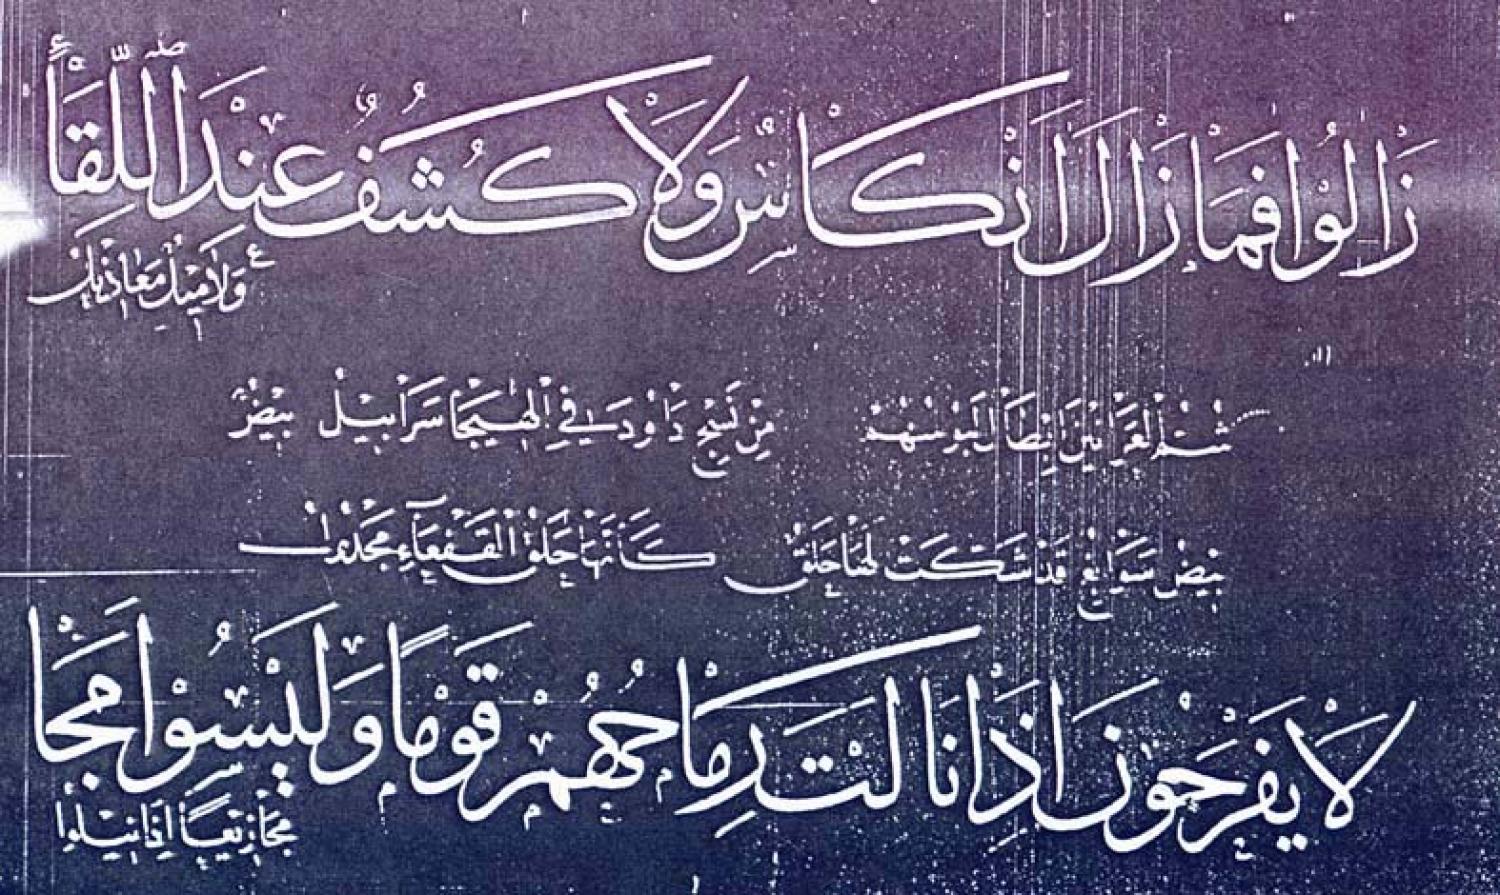 زَالُوا فَمَا زَالَ أَنْكَاسٌ وَلَا كُشُفٌ عِنْدَ اللِّقَاءِ
وَلَا مِيلٌ مَعَازِيلُ
شُمُّ الْعَرَانِينَ أَبْطَالٌ لَبُوسُهُمْ مِنْ نَسْجِ دَاوُدَ فِي الْهَيْجَا سَرَابِيلُ بِيضٌ
بِيضٌ سَوَابِغُ قَدْ شُكَّتْ لَهَا حَلَقٌ كَأَنَّهَا حَلَقُ الْقَفْعَاءِ مَجْدُولُ
لَا يَفْرَحُونَ إِذَا نَالَتْ رِمَاحُهُمْ قَوْمًا وَلَيْسُوا مَجَا
مَجَازِيعًا إِذَا نِيلُوا